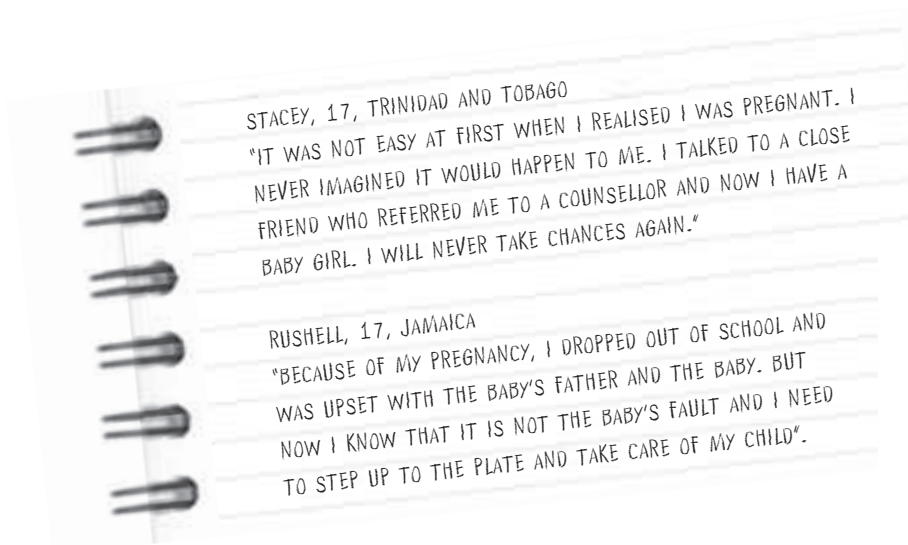 STACEY, 17, TRINIDAD AND TOBAGO
"IT WAS NOT EASY AT FIRST WHEN I REALISED I WAS PREGNANT. I
NEVER IMAGINED IT WOULD HAPPEN TO ME. I TALKED TO A CLOSE
FRIEND WHO REFERRED ME TO A COUNSELLOR AND NOW I HAVE A
BABY GIRL. I WILL NEVER TAKE CHANCES AGAIN."
RUSHELL, 17, JAMAICA
"BECAUSE OF MY PREGNANCY, I DROPPED OUT OF SCHOOL AND
WAS UPSET WITH THE BABY'S FATHER AND THE BABY. BUT
NOW I KNOW THAT IT IS NOT THE BABY'S FAULT AND I NEED
TO STEP UP TO THE PLATE AND TAKE CARE OF MY CHILD".